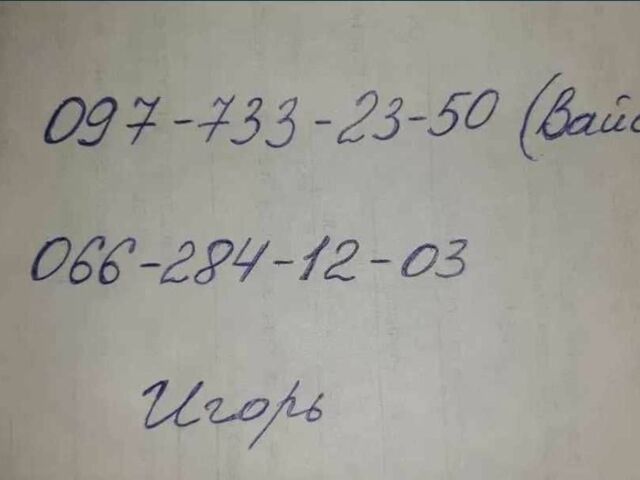 097-733-23-50 (Вайс
066-284-12-03
Игорь